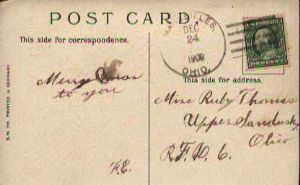 POST CARD.
This side for correspondence.
DEC
24
1909
OHIO.
This side for address.
Merry Xmas
to you
F.E.
Miss Ruby Thomas
Upper Sandusky
Ohio
R.F.D. 6
PRINTED IN GERMANY